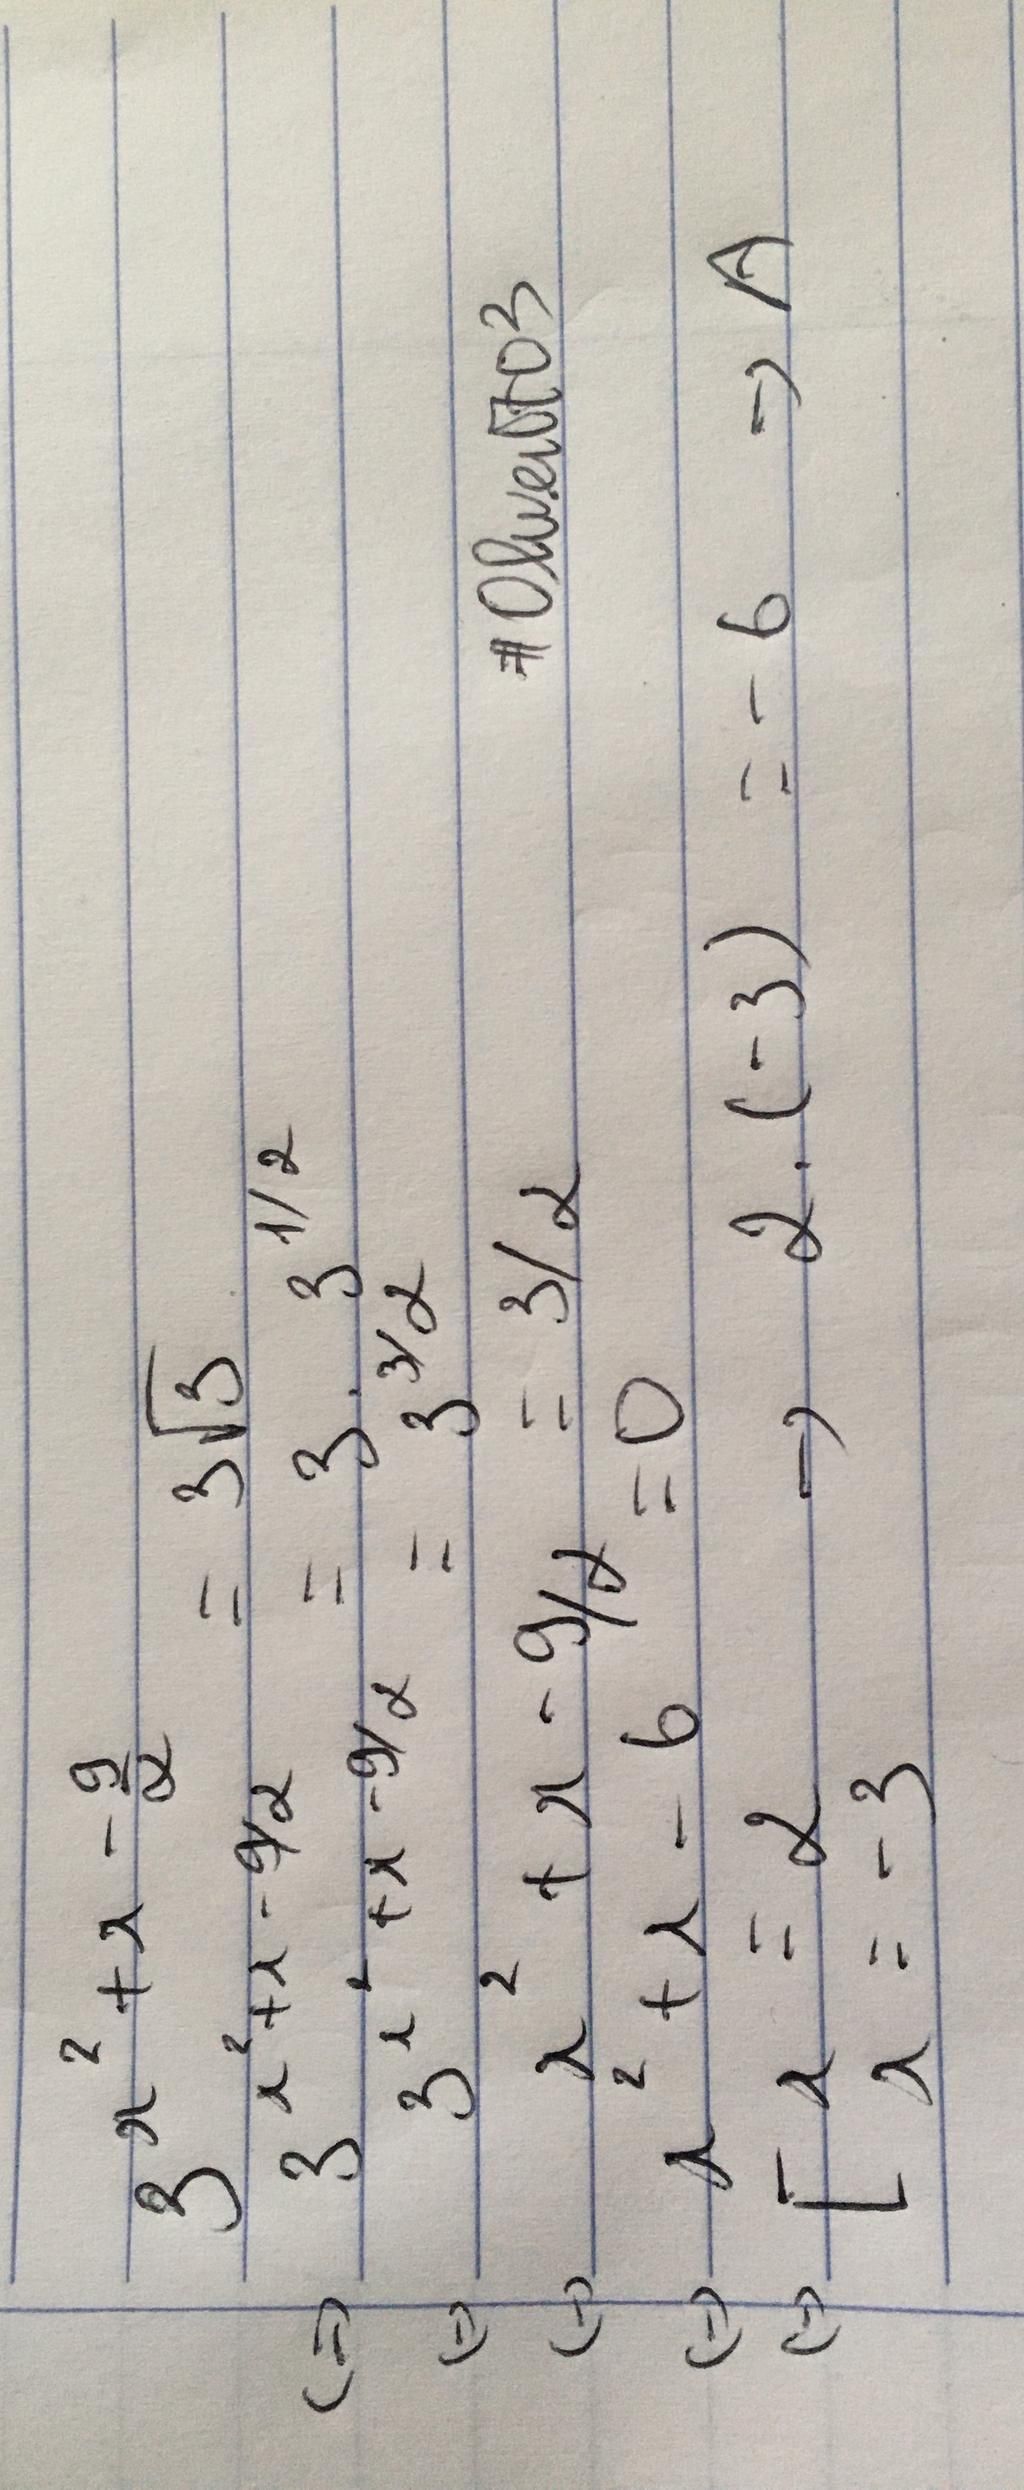 3^{x^2 + x - \frac{9}{2}} = 3\sqrt{3}
⇔ 3^{x^2 + x - 9/2} = 3 \cdot 3^{1/2}
⇔ 3^{x^2 + x - 9/2} = 3^{3/2}
⇔ x^2 + x - 9/2 = 3/2
⇔ x^2 + x - 6 = 0
⇔ [ x = 2 → 2 . (-3) = -6 → A
x = -3